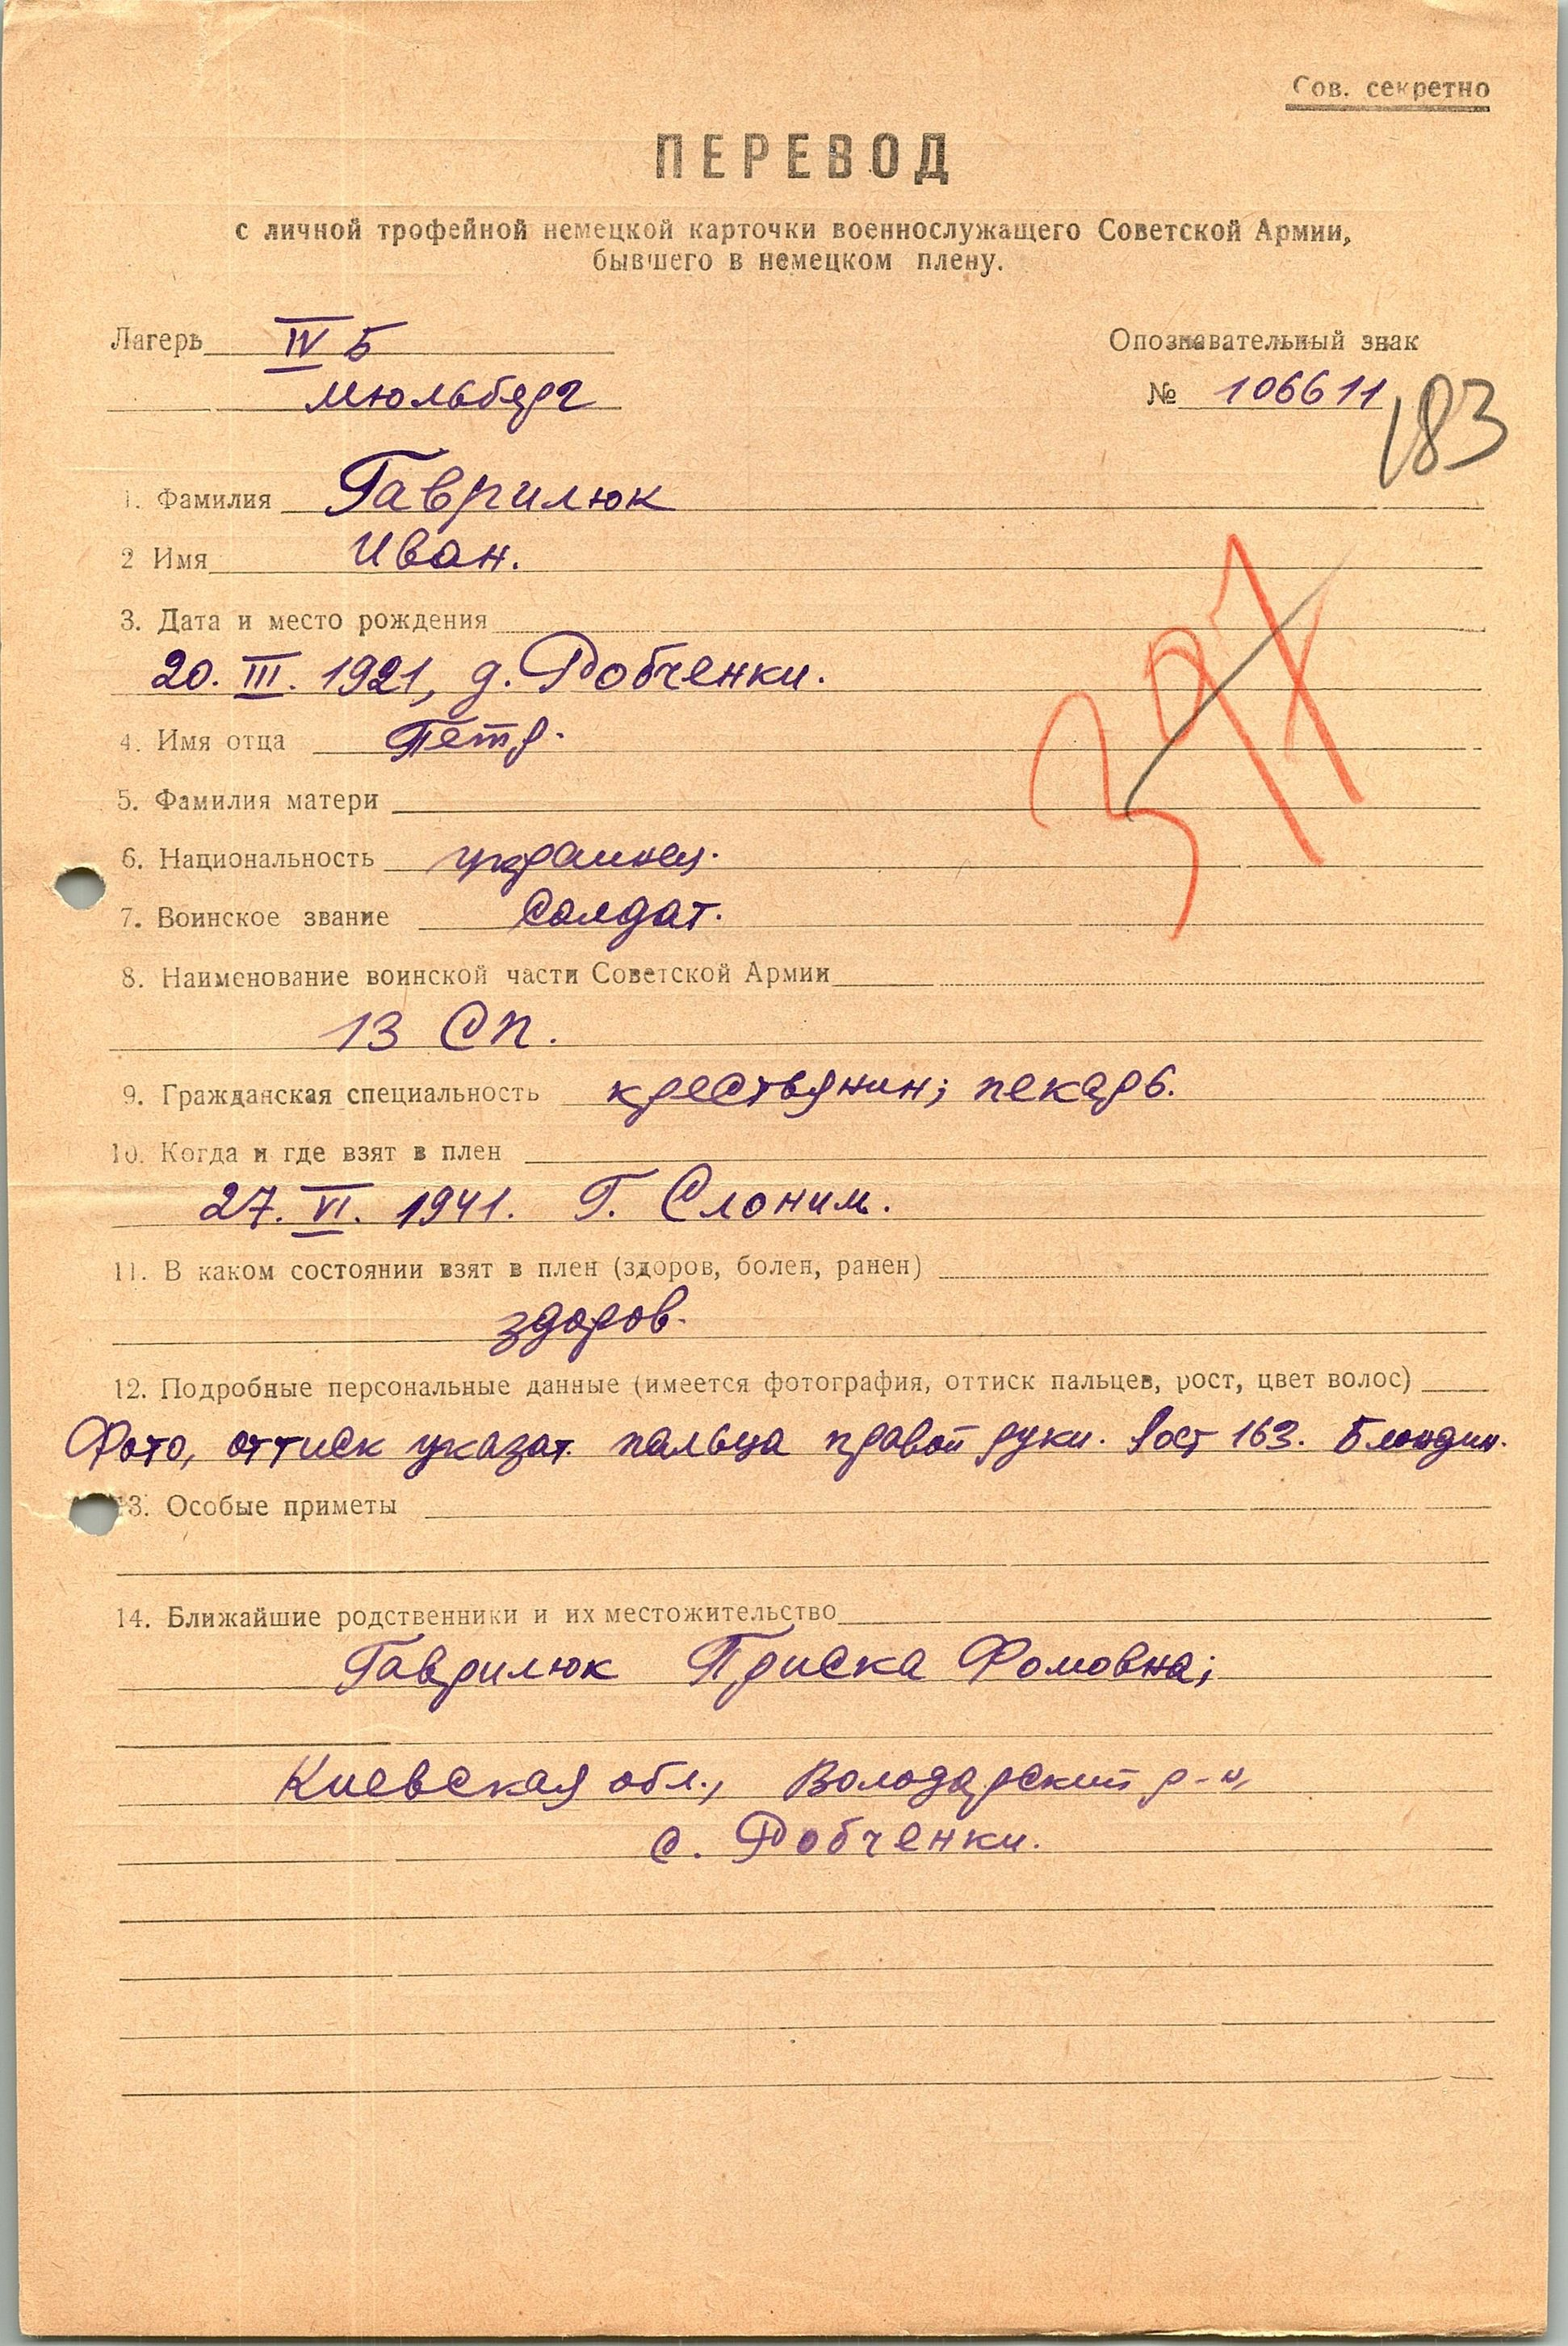 Сов. секретно
ПЕРЕВОД
с личной трофейной немецкой карточки военнослужащего Советской Армии,
бывшего в немецком плену.
Лагерь IV Б
Опознавательный знак
Мюльберг
№ 106611
183
1. Фамилия Гаврилюк
2 Имя Иван.
3. Дата и место рождения
20. III. 1921, д. Робченки.
4. Имя отца Петр.
397
5. Фамилия матери
6. Национальность украинец.
7. Воинское звание солдат.
8. Наименование воинской части Советской Армии
13 СП.
9. Гражданская специальность крестьянин; пекарь.
10. Когда и где взят в плен
27. VI. 1941. Г. Слоним.
11. В каком состоянии взят в плен (здоров, болен, ранен)
здоров.
12. Подробные персональные данные (имеется фотография, оттиск пальцев, рост, цвет волос)
Фото, оттиск указат. пальца правой руки. Рост 163. Блондин.
13. Особые приметы
14. Ближайшие родственники и их местожительство
Гаврилюк Приска Фомовна;
Киевская обл., Володарский р-н,
с. Робченки.